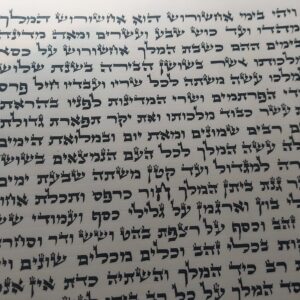 ויהי בימי אחשורוש הוא אחשורוש המלך
מהדו ועד כוש שבע ועשרים ומאה מדינה
בימים ההם כשבת המלך אחשורוש על כסא
מלכותו אשר בשושן הבירה בשנת שלוש
עשה משתה לכל שריו ועבדיו חיל פרס
הפרתמים ושרי המדינות לפניו בהראתו
כבוד מלכותו ואת יקר תפארת גדולתו
רבים שמונים ומאת יום ובמלואת הימים
עשה המלך לכל העם הנמצאים בשושן
למגדול ועד קטן משתה שבעת ימים
גנת ביתן המלך חור כרפס ותכלת
בוץ וארגמן על גלילי כסף ועמודי
זהב וכסף על רצפת בהט ושש ודר וסחרת
בכלי זהב וכלים מכלים שונים
רב כיד המלך והשתיה כדת אין